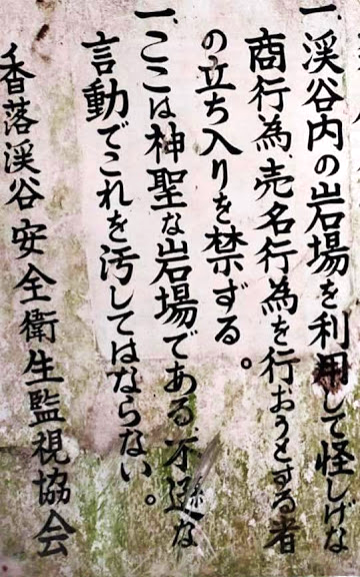 一、渓谷内の岩場を利用して怪しげな
商行為、売名行為を行おうとする者
の立ち入りを禁ずる。
一、ここは神聖な岩場である不遜な
言動でこれを汚してはならない。
香落渓谷安全衛生監視協会